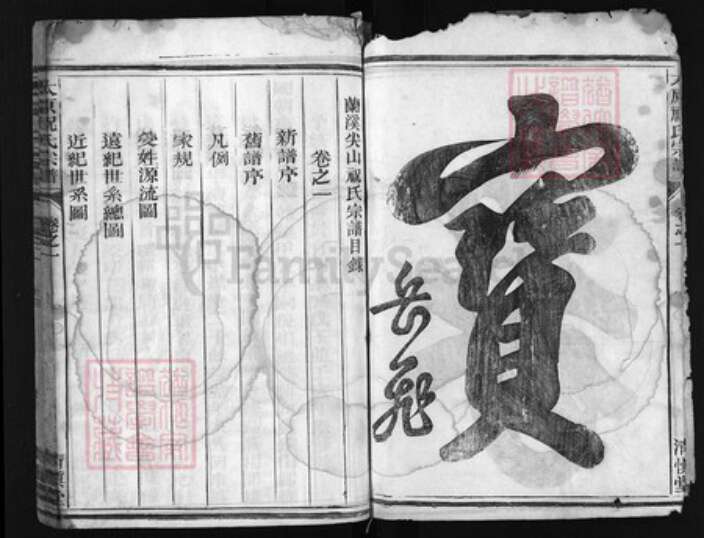 寶
岳飛
蘭溪尖山祝氏宗譜目錄
卷之一
新譜序
舊譜序
凡例
家規
受姓源流圖
遠紀世系總圖
近紀世系圖
太原祝氏宗譜
卷之一
FamilySearch